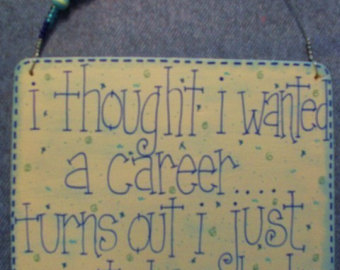 i thought i wanted
a career....
turns out i just